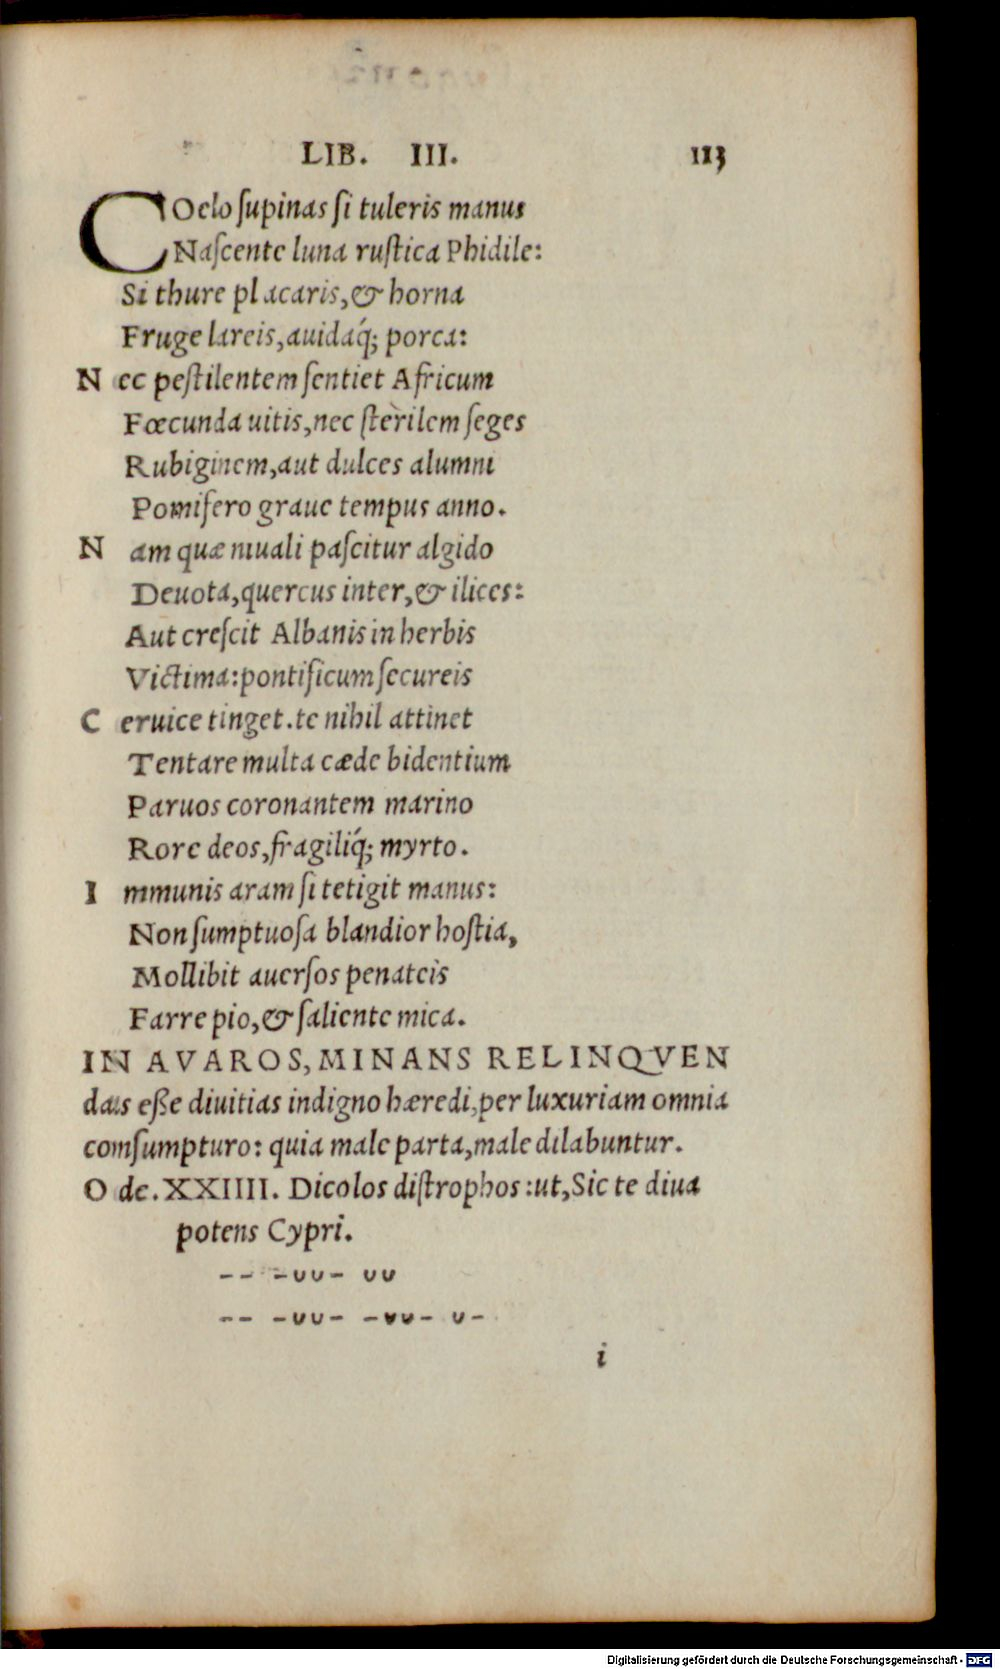 LIB. III. 113
COelo ſupinas ſi tuleris manus
Naſcente luna ruſtica Phidile:
Si thure placaris, & horna
Fruge lareis, auidaq́; porca:
N ec peſtilentem ſentiet Africum
Fœcunda uitis, nec ſtèrilem ſeges
Rubiginem, aut dulces alumni
Pomifero graue tempus anno.
N am quæ niuali paſcitur algido
Deuota, quercus inter, & ilices:
Aut creſcit Albanis in herbis
Victima: pontificum ſecureis
C eruice tinget. te nihil attinet
Tentare multa cæde bidentium
Paruos coronantem marino
Rore deos, fragiliq́; myrto.
I mmunis aram ſi tetigit manus:
Non ſumptuoſa blandior hoſtia,
Mollibit auerſos penateis
Farre pio, & ſaliente mica.
IN AVAROS, MINANS RELINQVEN
das eſſe diuitias indigno hæredi, per luxuriam omnia
comſumpturo: quia male parta, male dilabuntur.
O de. XXIIII. Dicolos diſtrophos: ut, Sic te diua
potens Cypri.
-- -uu- uu
-- -uu- -uu- u-
i
Digitalisierung gefördert durch die Deutsche Forschungsgemeinschaft - DFG